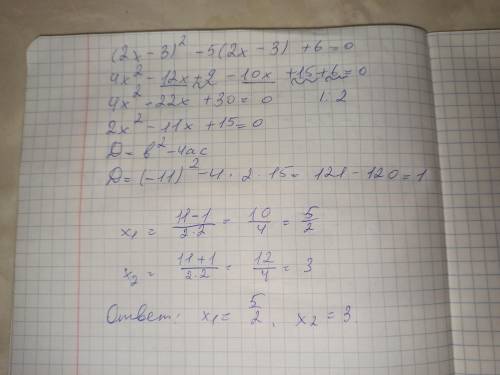 (2x-3)² -5(2x-3) +6=0
4x² -12x+9 -10x +15+6=0
4x² -22x +30 = 0 |:2
2x² -11x +15=0
D= b²-4ac
D= (-11)² -4·2·15= 121-120=1
x₁ = (11-1)/(2·2) = 10/4 = 5/2
x₂ = (11+1)/(2·2) = 12/4 = 3
Ответ: x₁= 5/2, x₂ = 3.